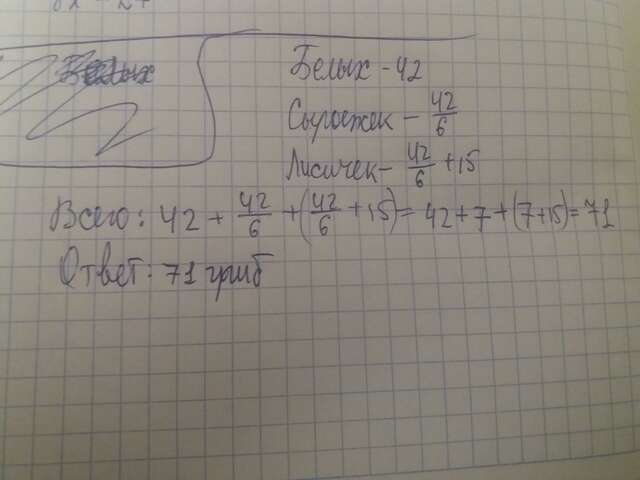 Белых - 42
Сыроежек - 42/6
Лисичек - 42/6 + 15
Всего: 42 + 42/6 + (42/6 + 15) = 42 + 7 + (7+15) = 71
Ответ: 71 гриб